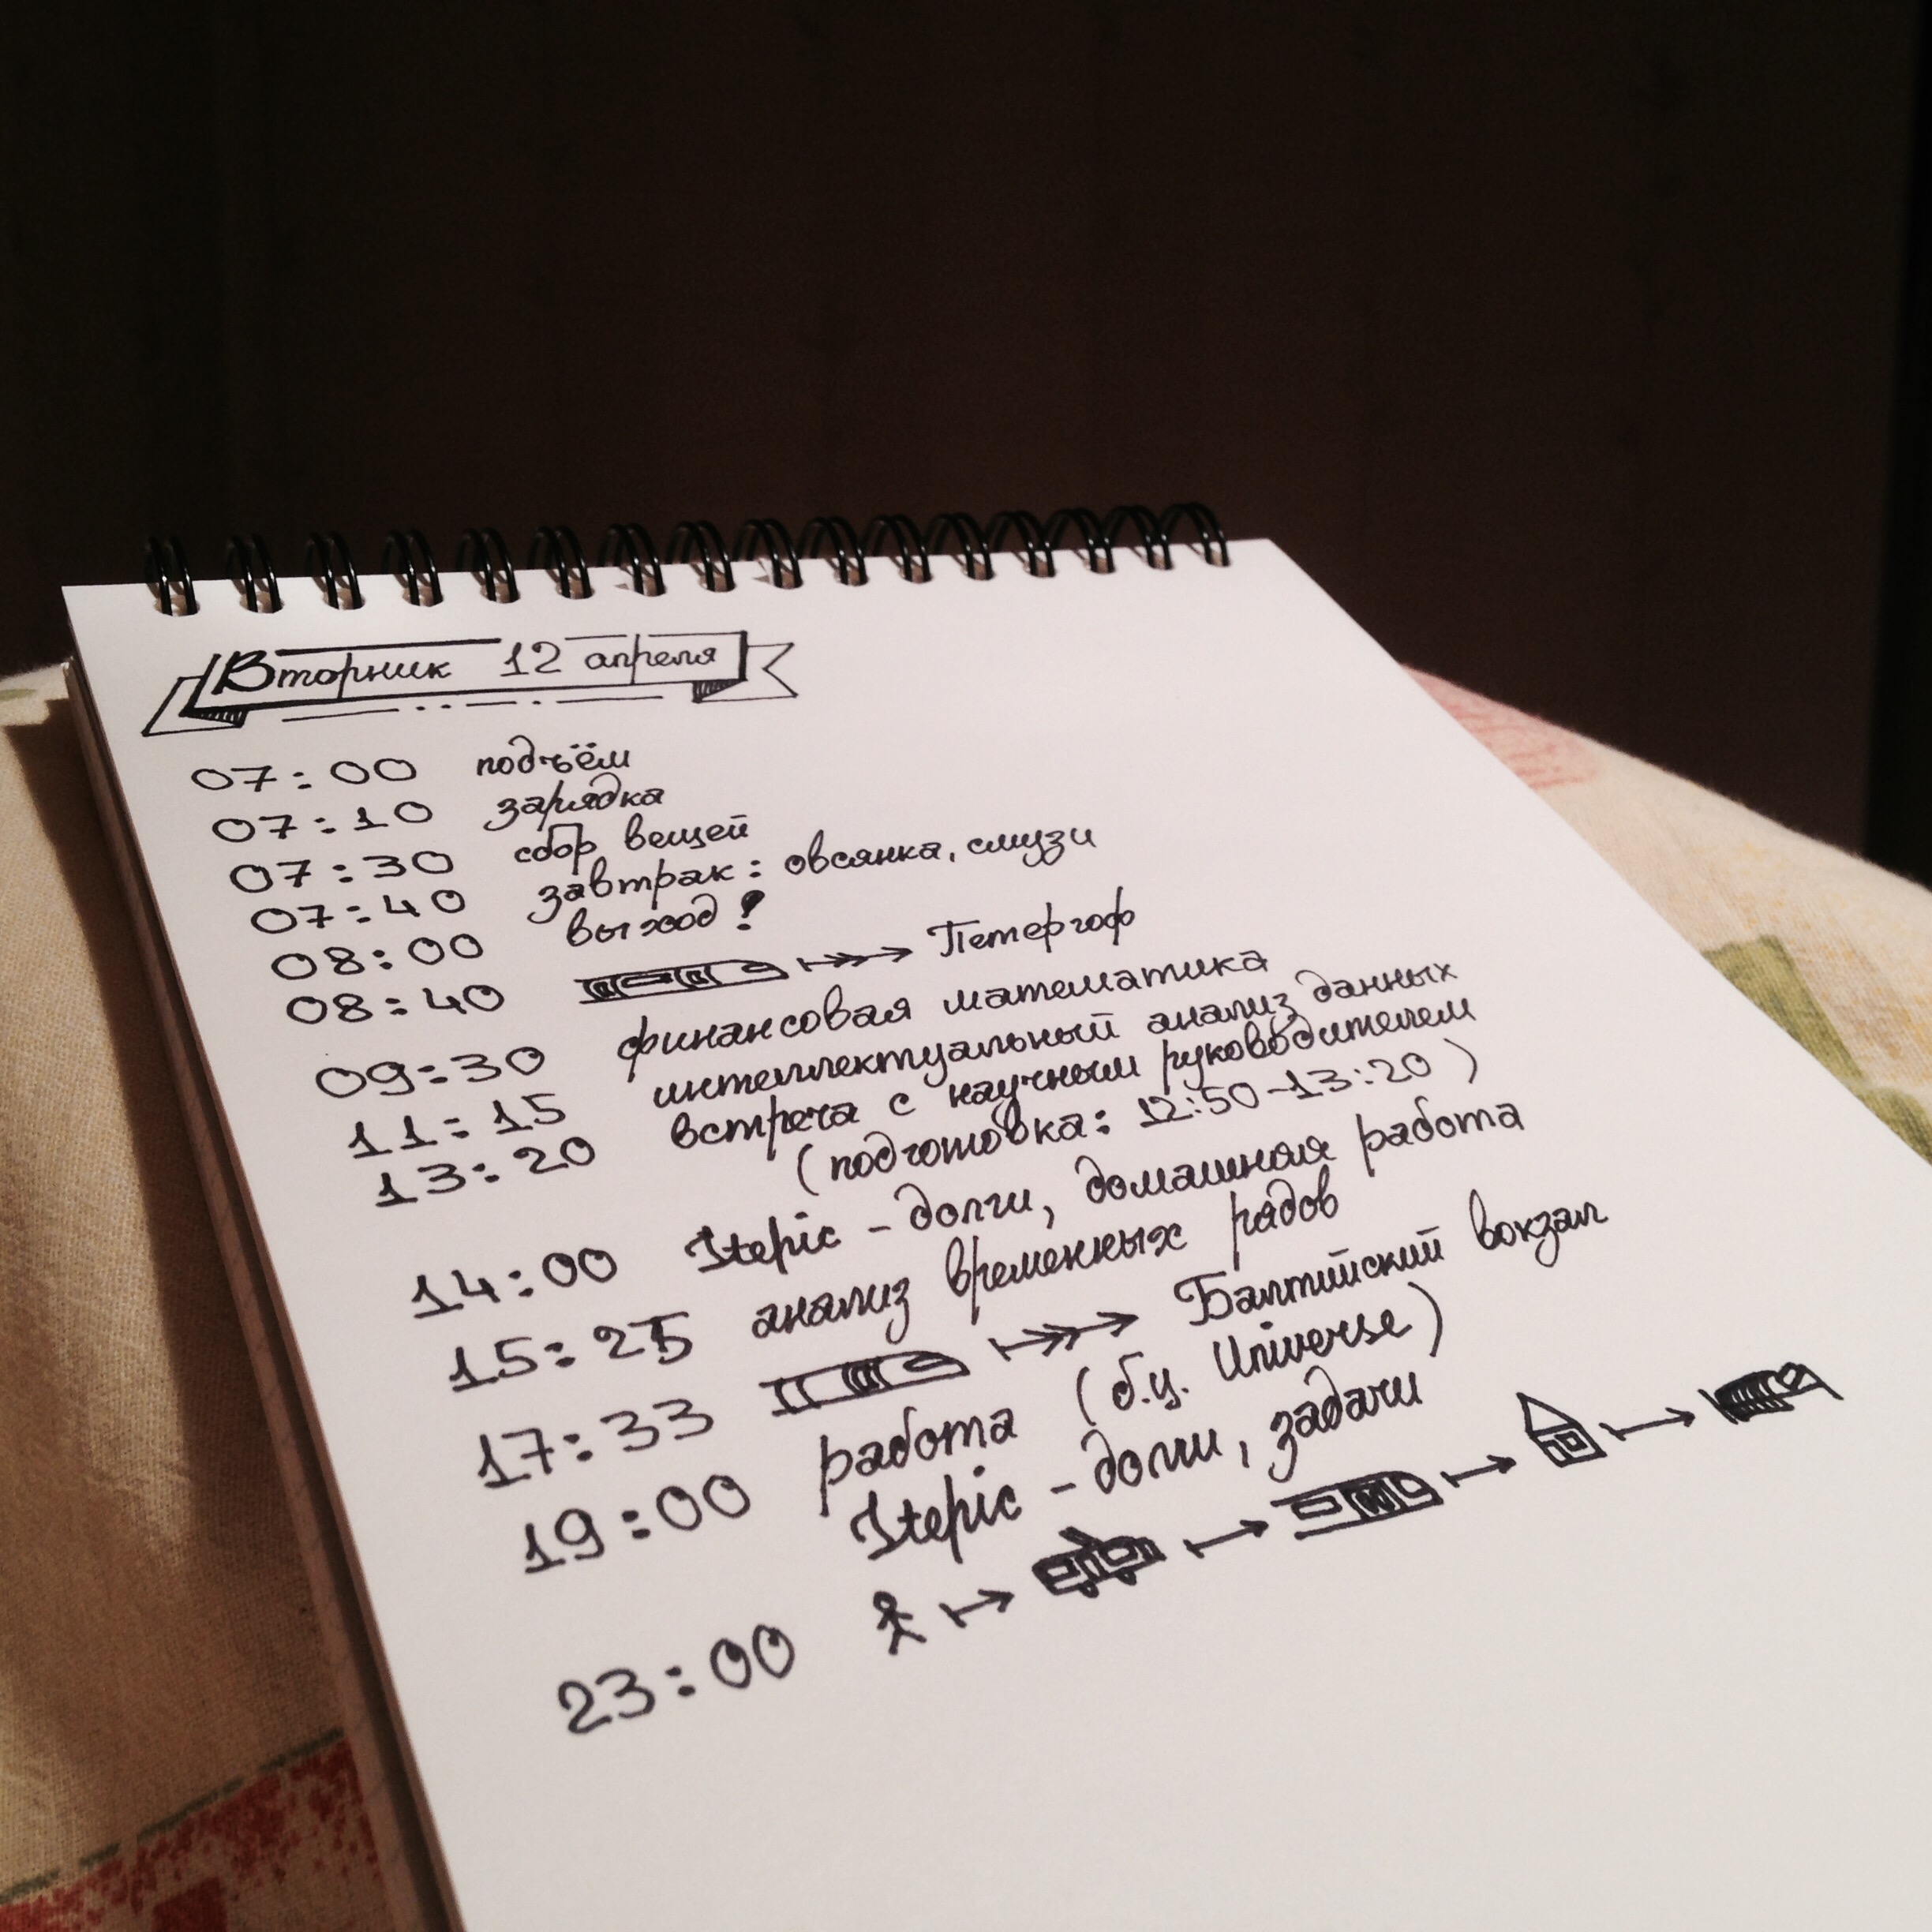 Вторник 12 апреля
07:00 подъём
07:10 зарядка
07:30 сбор вещей
07:40 завтрак: овсянка, смузи
08:00 выход!
08:40 Петергоф
09:30 финансовая математика
11:15 интеллектуальный анализ данных
13:20 встреча с научным руководителем
(подготовка: 12:50-13:20)
14:00 Stepic - долги, домашняя работа
15:25 анализ временных рядов
17:33 Балтийский вокзал
19:00 работа (б.ц. Universe)
Stepic - долги, задачи
23:00